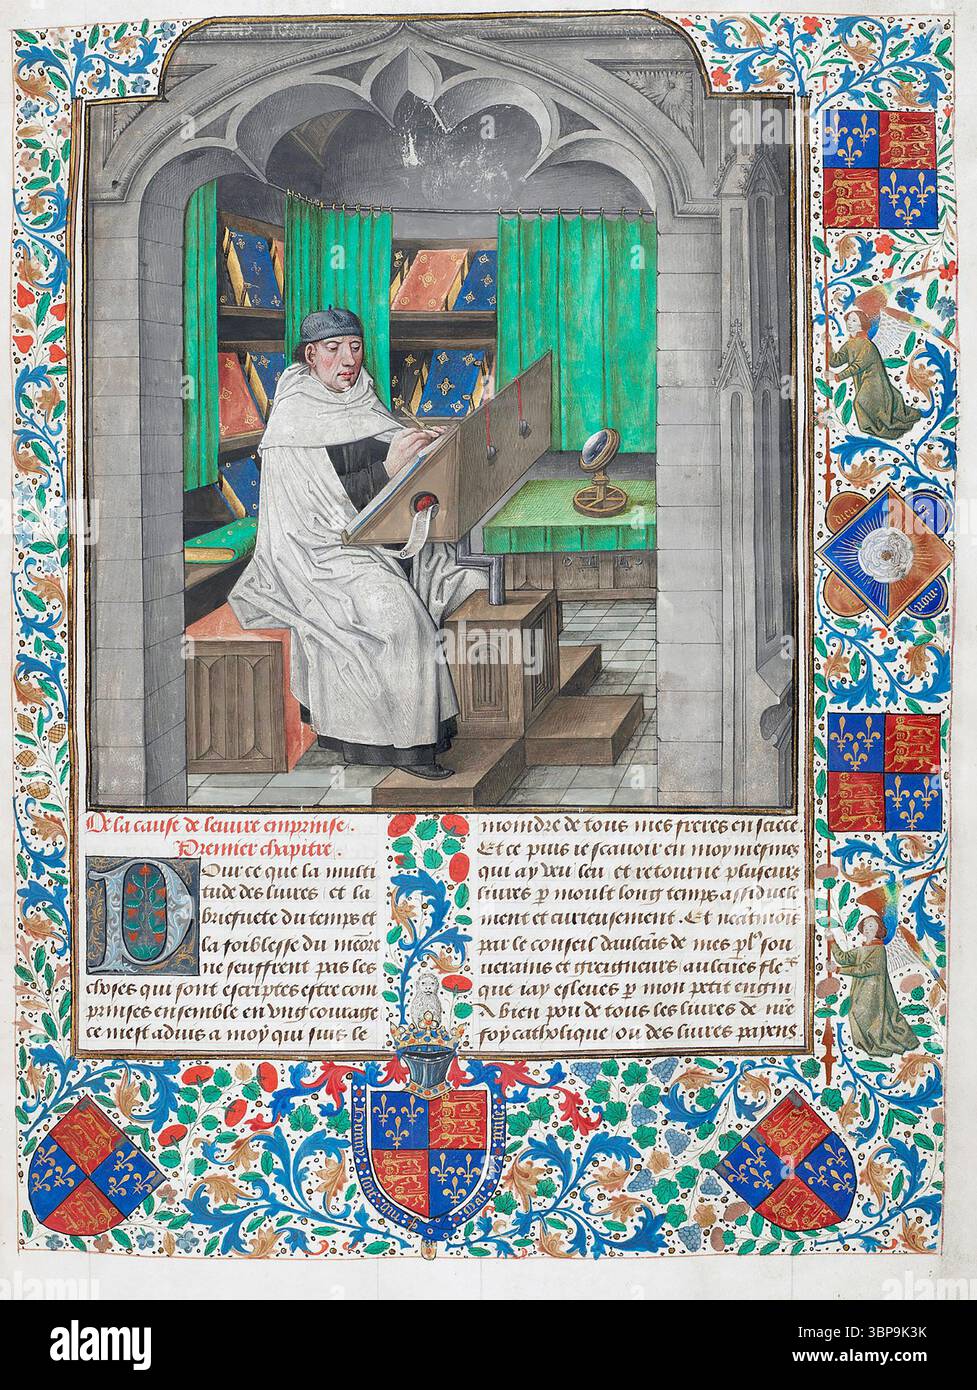 De la cause de leuure emprinse.
Premier chapitre.
Pour ce que la multi
tude des liures et la
briefuete du temps et
la foiblesse du memore
ne seuffrent pas les
choses qui sont escriptes estre com
prinses ensemble en vng courage
ce mest aduis a moy qui suis le
moindre de tous mes freres en science
Et ce puis ie scauoir en moy mesmes
qui ay veu leu et retourne pluseurs
liures p moult long temps assiduele
ment et curieusement. Et neatmois
par le conseil daulcus de mes pl' sou
uerains et greigneurs aulcues fle's
que iay esleues p mon petit engin
A bien pou de tous les liures de nre
foy catholique, ou des liures payens
dieu et
mon
Honny soit qui mal y pense
alamy
Image ID: 3BP9K3K
www.alamy.com